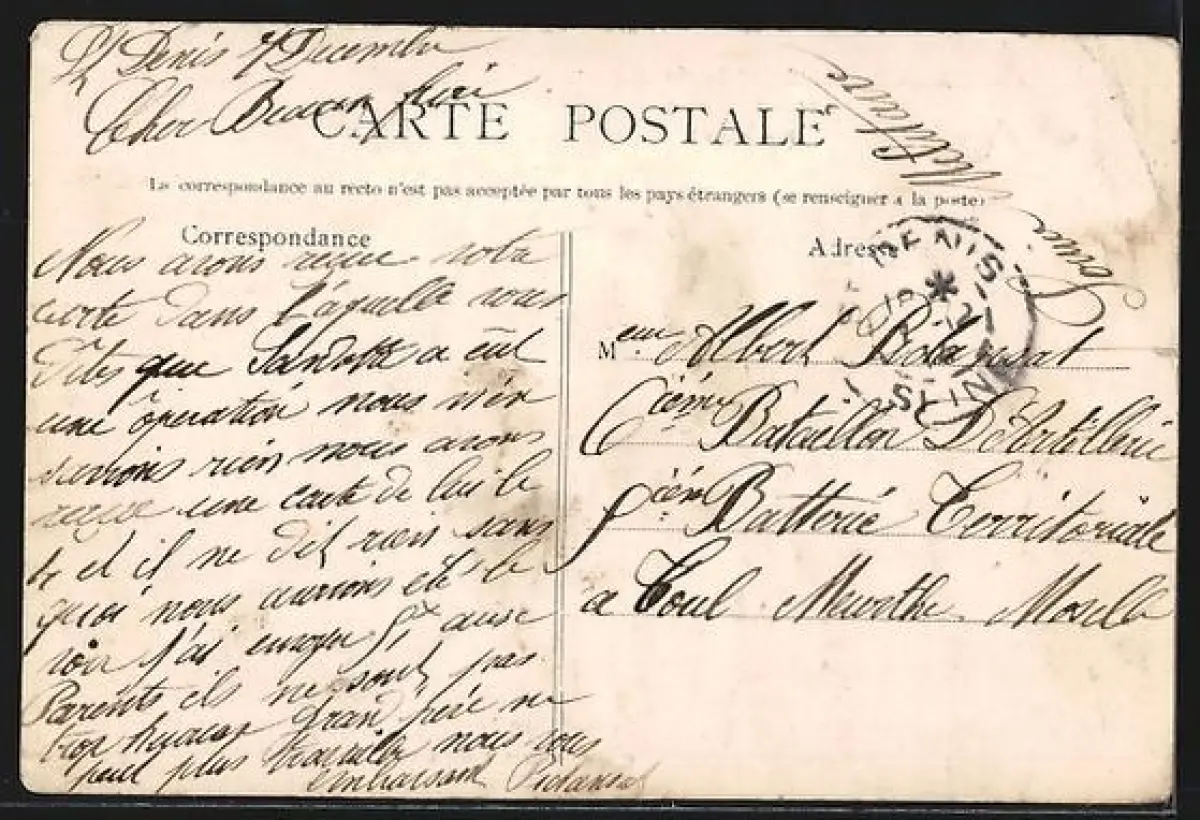 St Denis 4 Decembre
Cher Beau frère
CARTE POSTALE
La correspondance au recto n'est pas acceptée par tous les pays étrangers (se renseigner à la poste)
Correspondance
Nous avons reçue votre
carte dans laquelle vous
dites que a eut
une opération nous n'en
savions rien nous avons
reçue une carte de lui le
et il ne dit rien sans
quoi nous aurions été le
voir J'ai envoyer aux
Parents ils ne sont pas
trop heureux Grand père ne
peut plus travailler nous vous
embrassant
Militaire
Adresse
ST DENIS
SEINE
Meur Albert
6ième Bataillon D'Artillerie
ième Batterie Territoriale
a Toul Meurthe Moselle